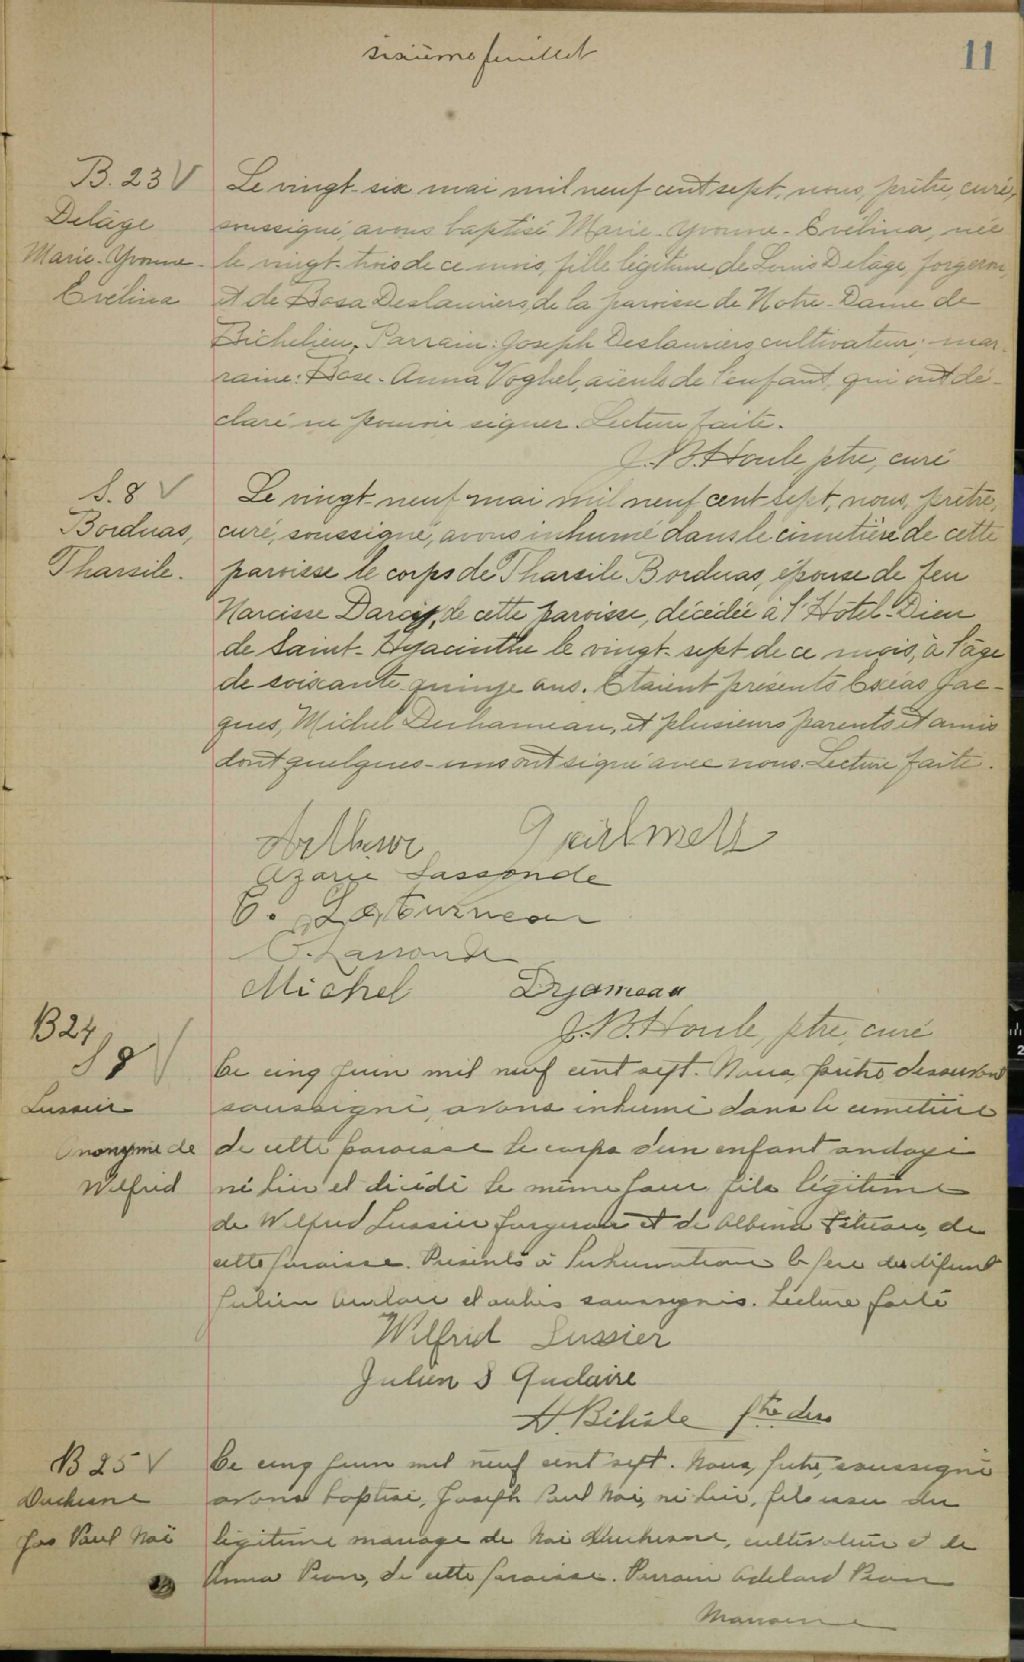 sixième feuillet
11
B. 23 V
Delâge
Marie-Yvonne-
Evélina
Le vingt-six mai mil neuf cent sept, nous, prêtre, curé,
soussigné, avons baptisé Marie-Yvonne-Evélina, née
le vingt-trois de ce mois, fille légitime de Louis Delâge, forgeron,
et de Rosa Deslauriers, de la paroisse de Notre-Dame de
Richelieu. Parrain: Joseph Deslauriers, cultivateur; mar-
raine: Rose-Anna Voghel, aïeuls de l'enfant, qui ont dé-
claré ne pouvoir signer. Lecture faite.
J. B. Houle ptre, curé
S. 8 V
Borduas,
Tharsile.
Le vingt-neuf mai mil neuf cent sept, nous, prêtre,
curé, soussigné, avons inhumé dans le cimetière de cette
paroisse le corps de Tharsile Borduas, épouse de feu
Narcisse Darcy, de cette paroisse, décédée à l'Hotel-Dieu
de Saint-Hyacinthe le vingt-sept de ce mois, à l'âge
de soixante-quinze ans. Etaient présents Exéas Jac-
ques, Michel Duhameau, et plusieurs parents et amis
dont quelques-uns ont signé avec nous. Lecture faite.
Arthur
Azarie Lassonde
E. Letourneau
Lassonde
Michel
J. B. Houle, ptre, curé
B 24
S 8 V
Lussier
Anonyme de
Wilfrid
Ce cinq juin mil neuf cent sept. Nous, prêtre desservant
soussigné, avons inhumé dans le cimetière
de cette paroisse le corps d'un enfant ondoyé
né hier et décédé le même jour fils légitime
de Wilfrid Lussier forgeron et de Albina de
cette paroisse. Présents à l'inhumation le père du défunt
Julien et autres soussignés. Lecture faite
Wilfrid Lussier
Julien S Audaire
H. Bélisle ptre des.
B 25 V
Duchesne
Jos Paul Noé
Ce cinq juin mil neuf cent sept. Nous, prêtre, soussigné
avons baptisé, Joseph Paul Noé, né hier, fils issu du
légitime mariage de Noé Duchesne, cultivateur et de
Anna Pion, de cette paroisse. Parrain Adélard Pion
Marraine